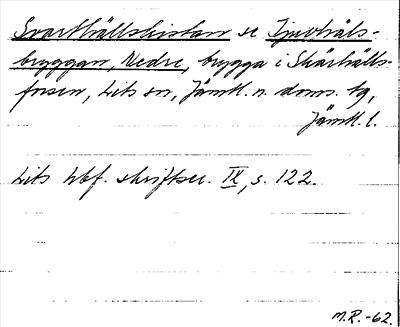 Svarthällskistan se Tjuvhåls-
bryggan, Nedre, brygga i Skärhälls-
forsen, Lits sn, Jämtl. n. doms. tg,
Jämtl. l.
Lits hbf. skriftser. IX, s. 122.
M.R.-62.